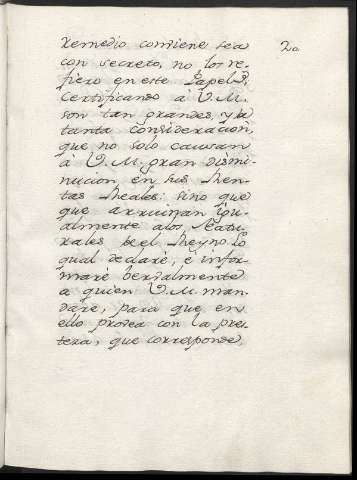 remedio contiene sea 20
con secreto, no los re-
fiero en este Papel,
Certificando à V.M.
son tan grandes, y de
tanta consideraciòn,
que no solo causan
à V.M. gran dismi-
nucion en sus Rhen-
tas Rheales: sino que
que arruinan igu-
almente a los Natu-
rales de el Rheyno lo
qual declarè, è infor-
marè berdalmente
a quien V.M. man-
dare, para que en
ello provea con la pres-
teza, que corresponde,